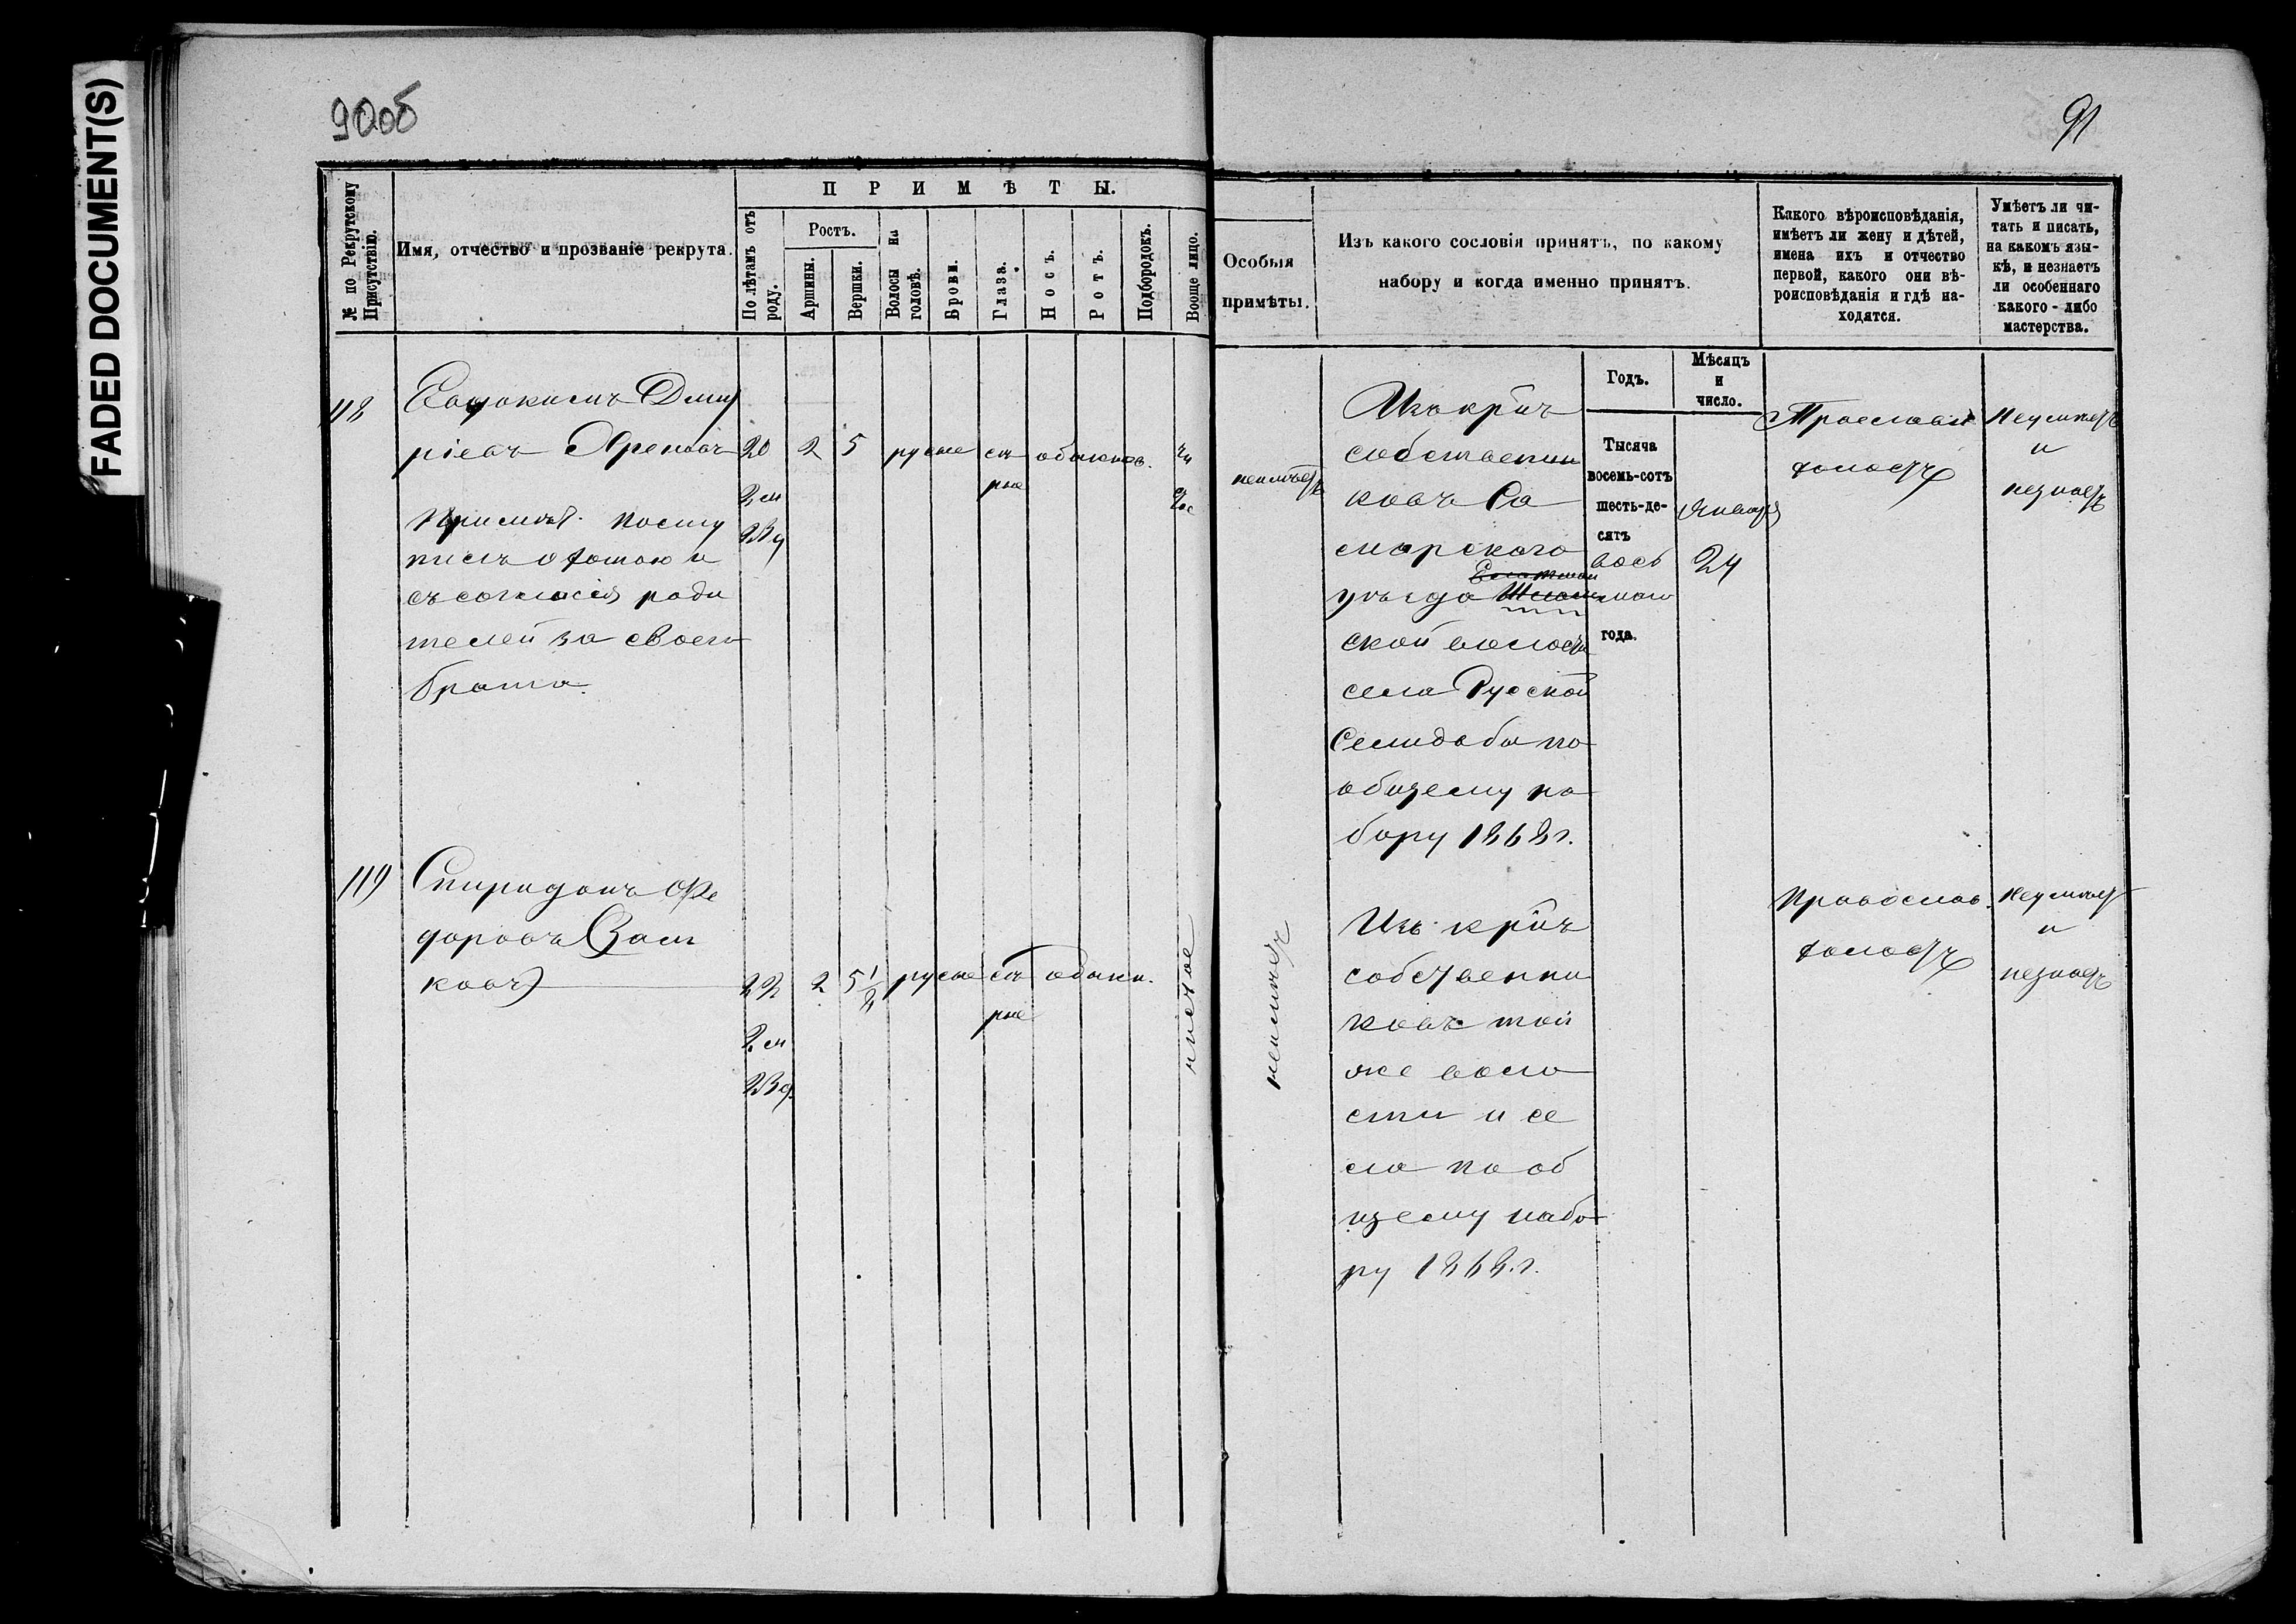 FADED DOCUMENT(S)
90об
91
№ по Рекрутскому Присутствію.
Имя, отчество и прозваніе рекрута.
ПРИМѢТЫ.
По лѣтамъ отъ роду.
Ростъ.
Аршины.
Вершки.
Волосы на головѣ.
Брови.
Глаза.
Носъ.
Ротъ.
Подбородокъ.
Вооще лицо.
Особыя
примѣты.
Изъ какого сословія принятъ, по какому
набору и когда именно принятъ.
Какого вѣроисповѣданія,
имѣетъ ли жену и дѣтей,
имена ихъ и отчество
первой, какого они вѣ-
роисповѣданія и гдѣ на-
ходятся.
Умѣетъ ли чи-
тать и писать,
на какомъ язы-
кѣ, и незнаетъ
ли особеннаго
какого-либо
мастерства.
Годъ.
Мѣсяцъ
и
число.
118
Евдокимъ Дмит
ріевъ
20
2
5
русые
сѣ
рые
обыкнов.
чи
стое
2 м
Примѣч. Посту
пилъ охотою и
съ согласія роди
телей за своего
брата.
неимѣетъ
Изъ кр͠нъ
собственни
ковъ Са
марского
уѣзда
ской волости
села Русской
Селидьбы по
общему на
бору 1868 г.
Тысяча
восемь-сотъ
шесть-де-
сятъ
вось
маго
года.
Января
24
Православн
холостъ
Неумѣетъ
и
незнаетъ
119
Спиридонъ Фе
доровъ
ковъ
22
2
5 1/2
русые
сѣ
рые
обыкн.
чистое
2 м
неимѣетъ
Изъ кр͠нъ
собственни
ковъ той
же воло
сти и се
ла по об
щему набо
ру 1868 г.
Православ.
холостъ
Неумѣетъ
и
незнаетъ